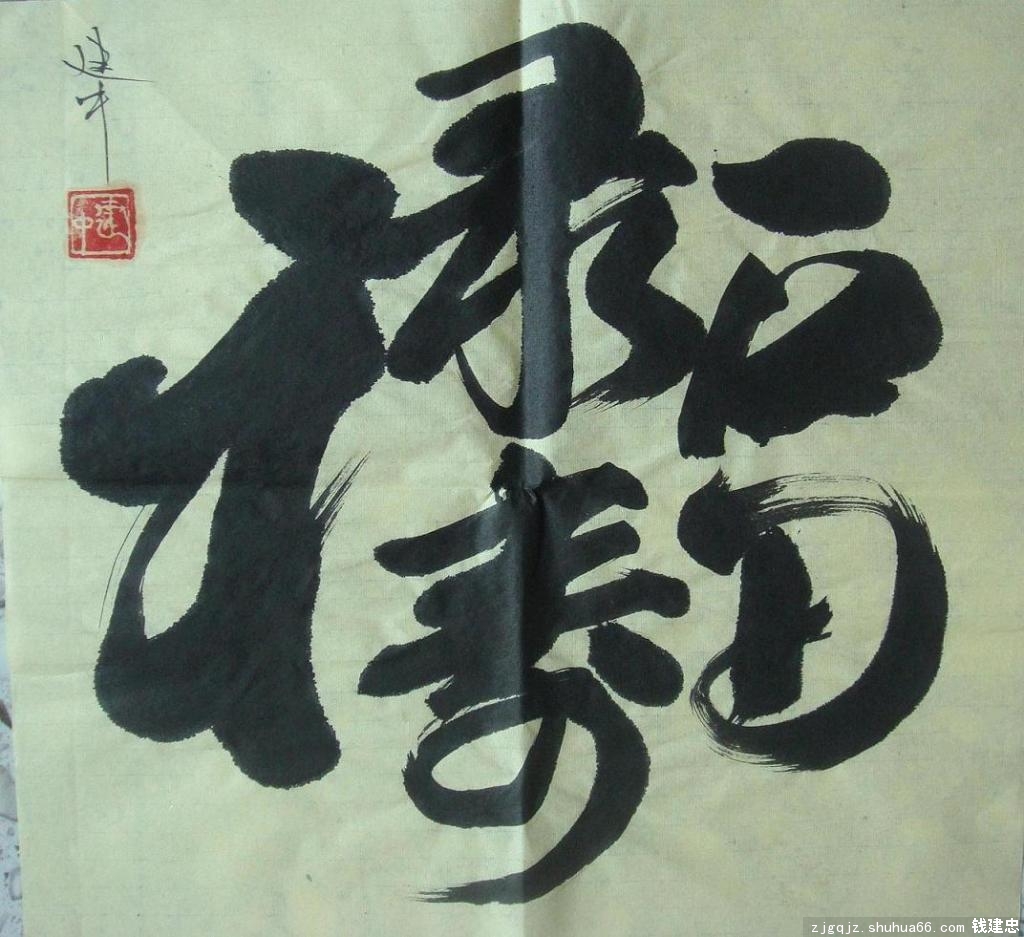 福禄寿
建中
建中
zjgqjz.shuhua66.com 钱建忠